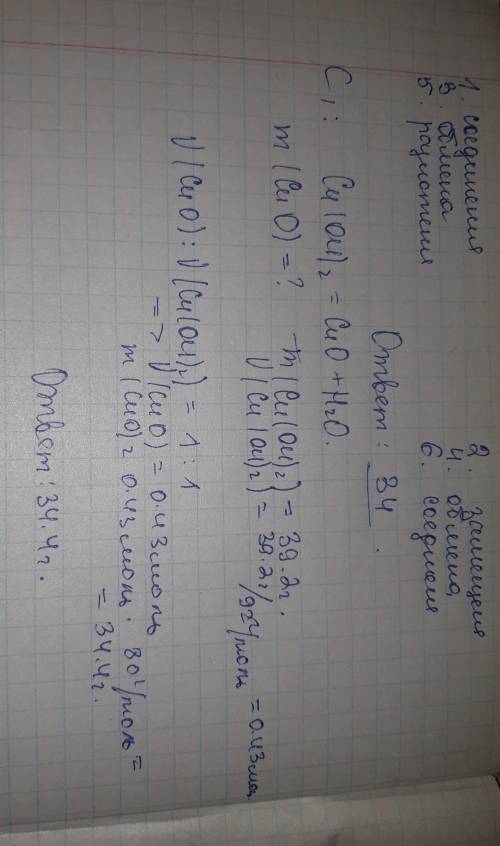 1. соединения 2. замещения
3. обмена 4. обмена
5. разложения 6. соединения
Ответ: 34.
C1: Cu(OH)2 = CuO + H2O.
m(CuO) = ? m(Cu(OH)2) = 39.2г.
ν(Cu(OH)2) = 39.2г/92г/моль = 0.43моль
ν(CuO):ν(Cu(OH)2) = 1:1
=> ν(CuO) = 0.43моль
m(CuO) = 0.43моль · 80г/моль =
= 34.4г.
Ответ: 34.4г.